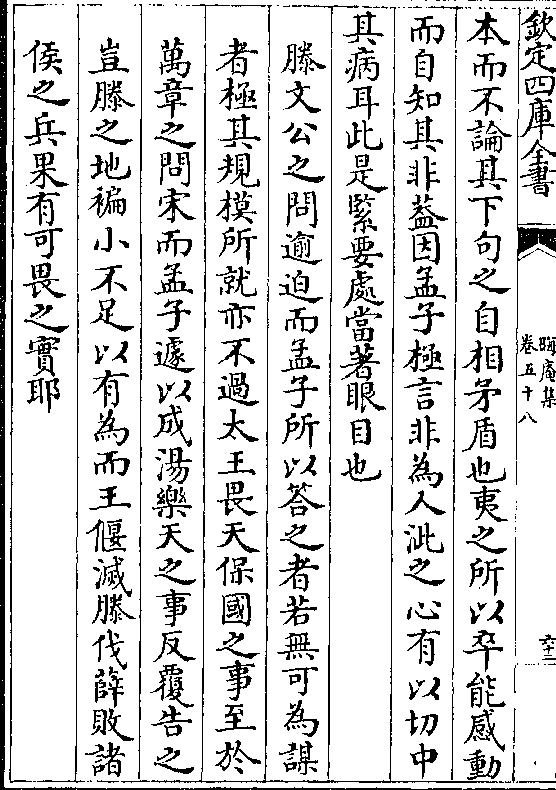 欽定四庫全書
晦庵集
卷五十八
六十二
本而不論其下句之自相矛盾也夷之所以卒能感動
而自知其非葢因孟子極言非為人泚之心有以切中
其病耳此是緊要處當著眼目也
滕文公之問逾迫而孟子所以答之者若無可為謀
者極其規模所就亦不過太王畏天保國之事至於
萬章之問宋而孟子遽以成湯樂天之事反覆告之
豈滕之地褊小不足以有為而王偃滅滕伐薛敗諸
侯之兵果有可畏之實耶